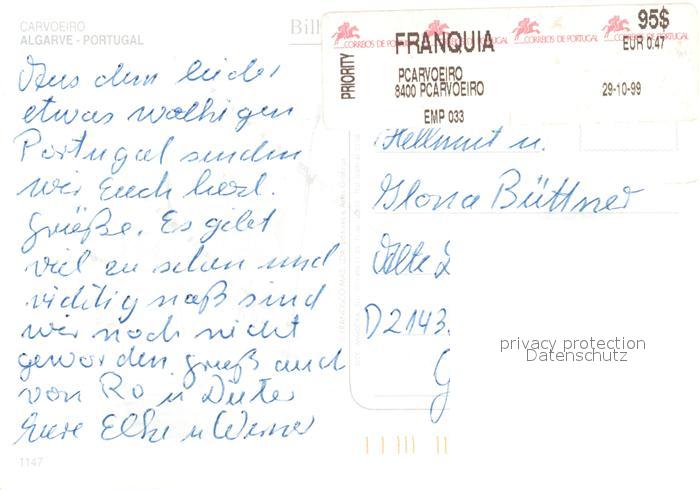 CARVOEIRO
ALGARVE - PORTUGAL
Aus dem leider
etwas wolkigen
Portugal senden
wir Euch herzl.
Grüße. Es gibt
viel zu sehen und
richtig naß sind
wir noch nicht
geworden. Gruß auch
von Ro u Dieter
Eure Elke u Werner
1147
PRIORITY
CORREIOS DE PORTUGAL CORREIOS DE PORTUGAL CORREIOS DE PORTUGAL CORREIOS DE PORTUGAL
FRANQUIA
95$
EUR 0.47
PCARVOEIRO
8400 PCARVOEIRO
29-10-99
EMP 033
Hellmut u.
Ilona Büttner
Alte
D2143.
G
privacy protection
Datenschutz